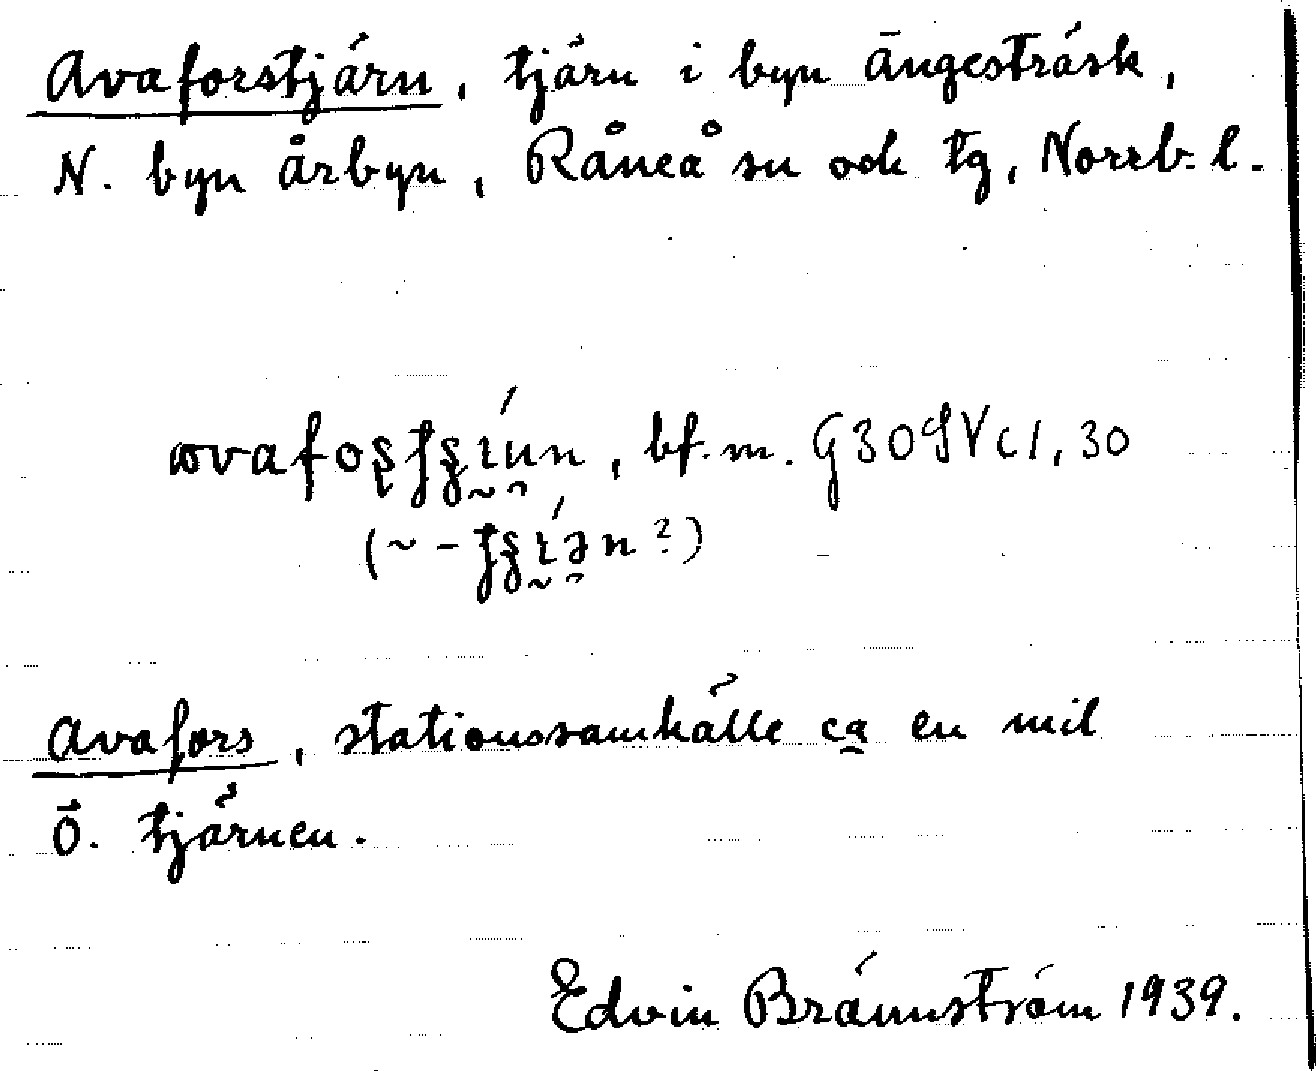 Avaforstjärn, tjärn i byn Ängesträsk,
N. byn Årbyn, Råneå sn och tg, Norrb. l.
bf. m. G30SVc1,30
Avafors, stationssamhälle ca en mil
Ö. tjärnen.
Edvin Brännström 1939.